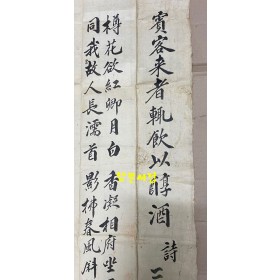 賓客来者輒飲以醇酒 詩三
樽花欲紅卿月白 香凝相府坐
同我故人長濡首 影拂春風斜